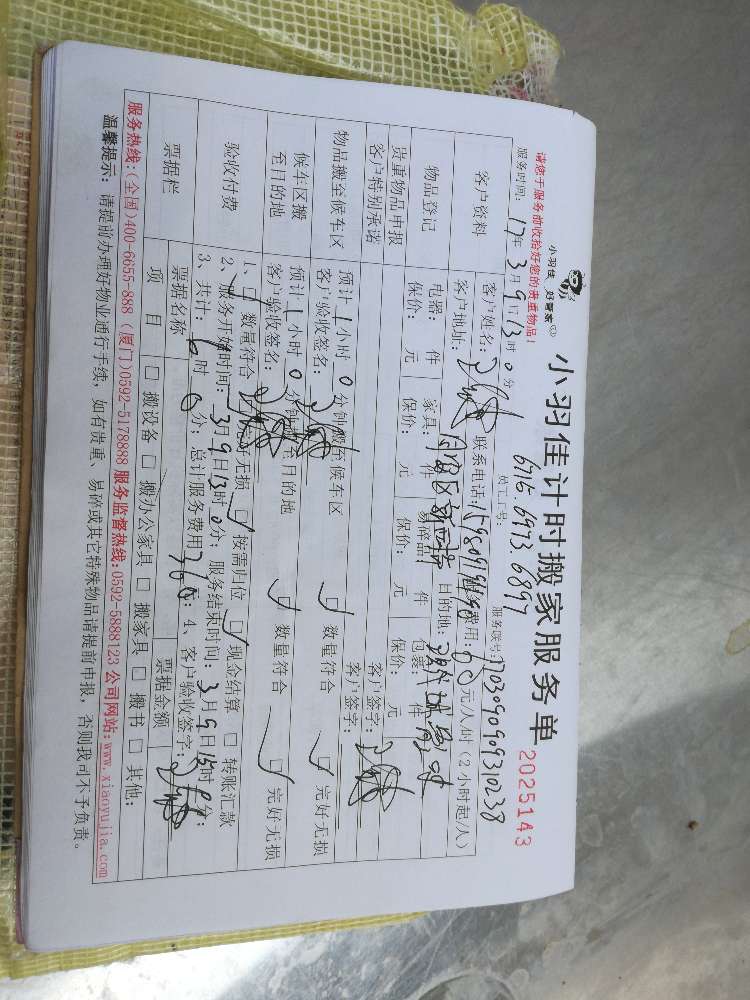 小羽佳 好管家
小羽佳计时搬家服务单
2025143
请您于服务前收拾好您的贵重物品!
员工工号: 6715.6973.6897
服务时间: 17年3月9日13时0分
服务联号: 1703090909310238
客户资料
客户姓名:
联系电话:
服务费用: 60元/人/时(2小时起/人)
客户地址:
目的地:
物品登记
电器: 件 家具: 件 易碎品: 件 包裹: 件
保价: 元 保价: 元 保价: 元 保价: 元
贵重物品申报
客户签字:
客户特别承诺
客户签字:
物品搬至候车区
预计1小时0分钟搬至候车区
客户验收签名: ☑ 数量符合 ☑ 完好无损
候车区搬至目的地
预计1小时0分钟搬至目的地
客户验收签名: ☑ 数量符合 ☑ 完好无损
验收付费
1、☑ 数量符合 ☑ 完好无损 ☑ 按需归位 ☑ 现金结算 □ 转账汇款
2、服务开始时间: 3月9日13时0分; 服务结束时间: 3月9日15时0分;
3、共计: 6时0分; 总计服务费用360元; 4、客户验收签字:
票据栏
票据名称 票据金额
项目 □ 搬设备 □ 搬办公家具 □ 搬家具 □ 搬书 □ 其他:
服务热线:(全国)400-6655-888 (厦门)0592-5178888 服务监督热线:0592-5888123 公司网站:www.xiaoyujia.com
温馨提示: 请提前办理好物业通行手续, 如有贵重、易碎或其它特殊物品请提前申报, 否则我司不予负责。